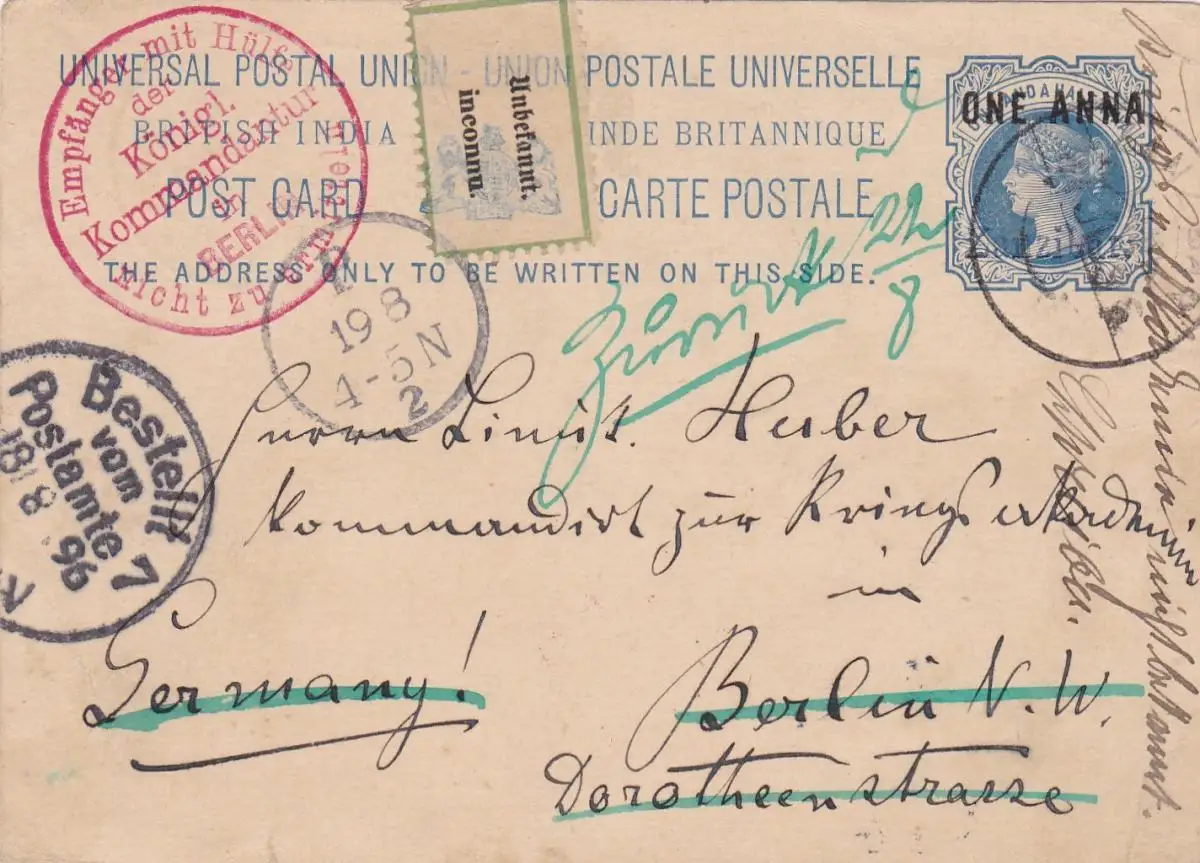 UNIVERSAL POSTAL UNION - UNION POSTALE UNIVERSELLE
BRITISH INDIA INDE BRITANNIQUE
POST CARD CARTE POSTALE
THE ADDRESS ONLY TO BE WRITTEN ON THIS SIDE.
ONE ANNA
Empfänger mit Hülfe
der
Königl.
Kommandatur
in
BERLIN
nicht zu ermitteln
Unbekannt.
inconnu.
19 8
4-5 N
2
Bestellt
vom
Postamte 7
18/8 96
Zürück 22/8
Herrn Limit. Huber
kommandirt zur Kriegsakademie
in
Germany!
Berlin N.W.
Dorotheenstrasse
nicht bekannt.